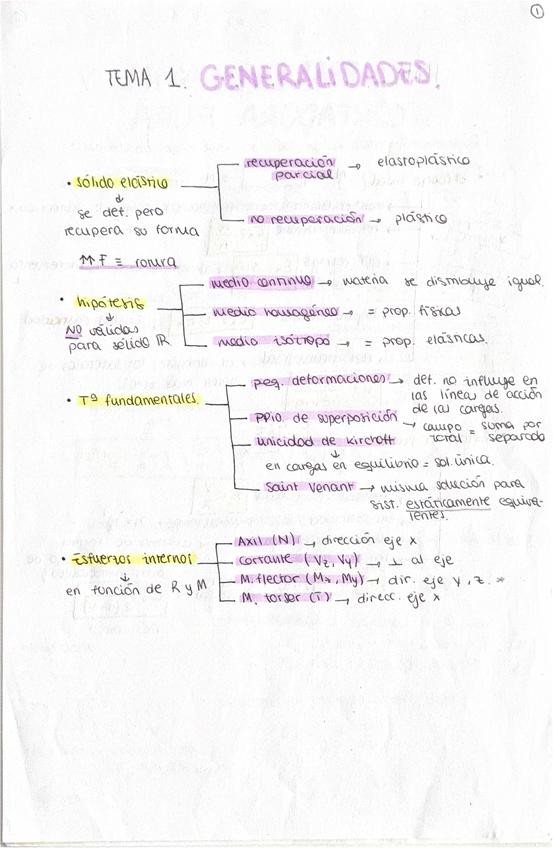 1
TEMA 1. GENERALIDADES.
• sólido elástico
↓
se def. pero
recupera su forma
recuperación parcial → elastoplástico
no recuperación → plástico
↑↑ F ≡ rotura
• hipótesis
↓
NO válidas
para sólido IR
medio continuo → materia se distribuye igual.
medio homogéneo → = prop. físicas
medio isótropo → = prop. elásticas.
• Tª fundamentales
peq. deformaciones → def. no influye en
las líneas de acción
de las cargas.
PPio. de superposición → campo total = suma por separado
unicidad de Kirchoff
↓
en cargas en equilibrio = sol. única.
Saint Venant → misma solución para
sist. estáticamente equiva-
lentes.
• Esfuerzos internos
↓
en función de R y M
Axil (N) → dirección eje x
cortante (Vz, Vy) → ⊥ al eje
M. flector (Mz, My) → dir. eje y, z. *
M. torsor (T) → direcc. eje x